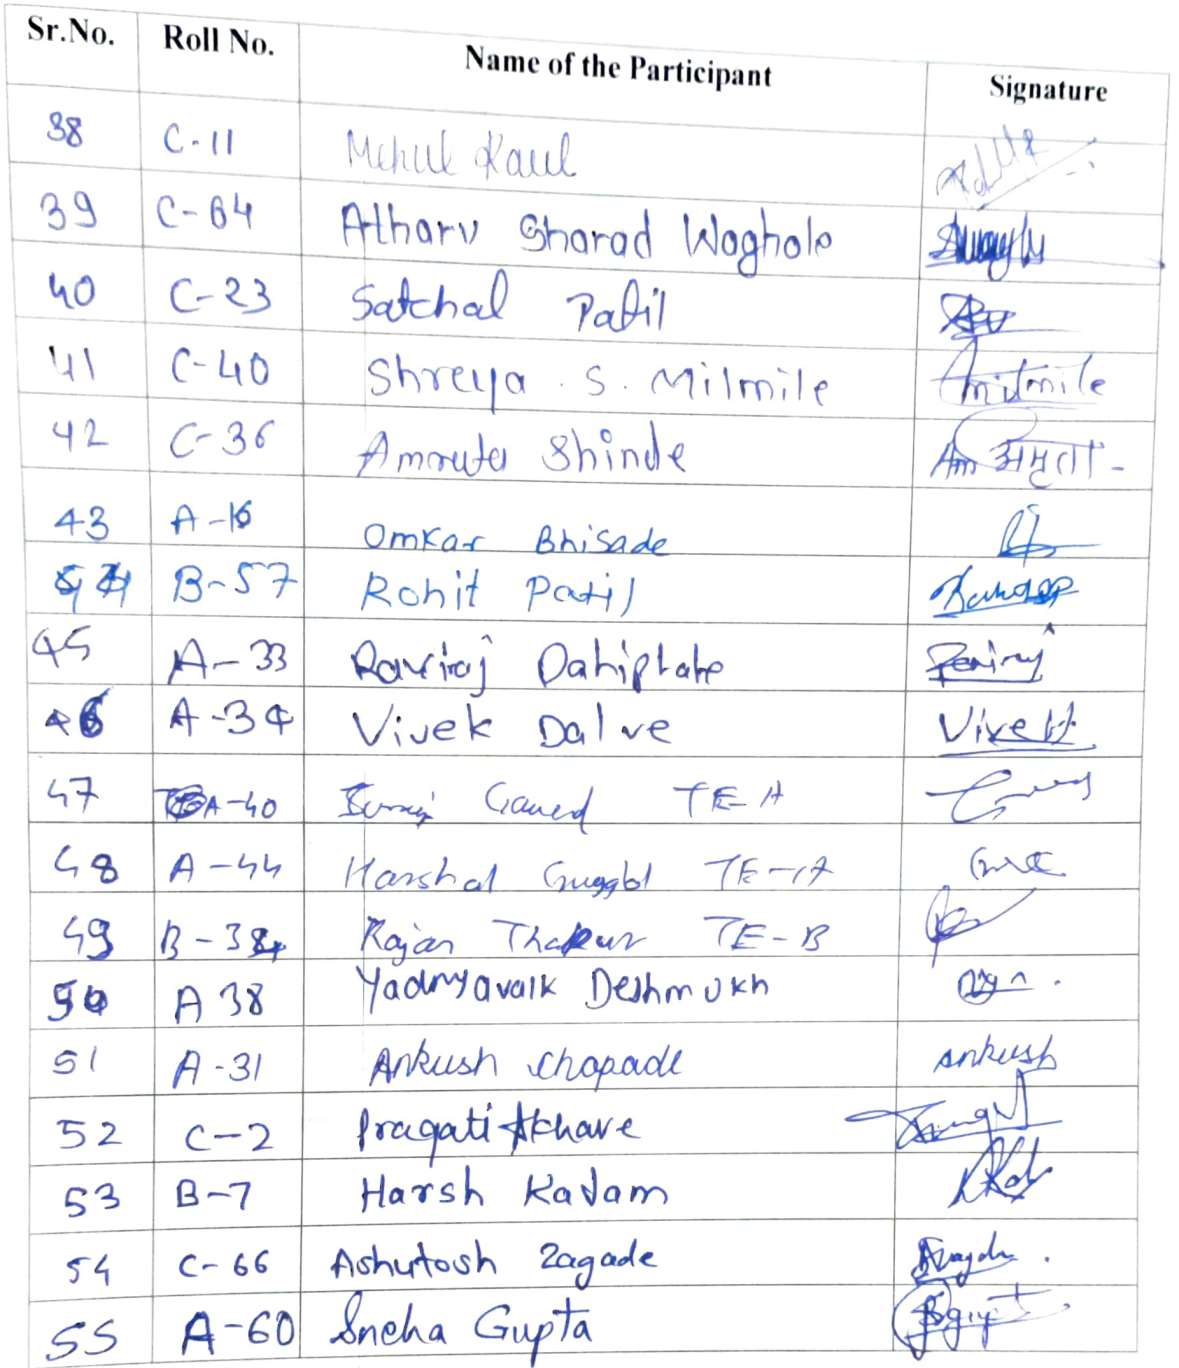 Sr.No. Roll No. Name of the Participant Signature
38 C-11 Mehul Kaul
39 C-64 Atharv Sharad Waghole
40 C-23 Satchal Patil
41 C-40 Shreya . S. Milmile Milmile
42 C-36 Amruta Shinde Am अमृता -
43 A-16 Omkar Bhisade
44 B-57 Rohit Patil
45 A-33 Raviraj Dahiphale
46 A-34 Vivek Dalve Vivek
47 A-40 Suraj TE-A
48 A-44 Harshal TE-A
49 B-34 Rajan Thakur TE-B
50 A 38 Yadnyavalk Deshmukh
51 A-31 Ankush Chopade ankush
52 C-2 Pragati Akhare
53 B-7 Harsh Kadam
54 C-66 Ashutosh Zagade
55 A-60 Sneha Gupta